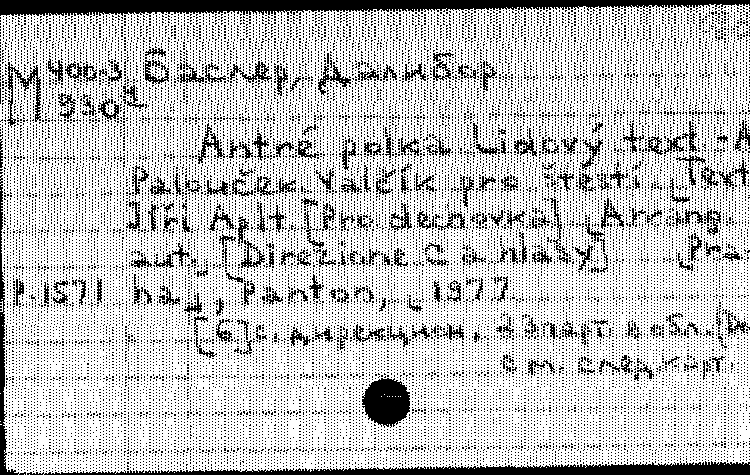 М 400-3 Баслер, Далибор
930
Antré polka Lidový text - A.
Palouček. Valčík pro štěstí. Text
Jiří Aplt. [Pro dechovka] Arrang.
aut. [Direzione C a hlasy] Pra-
P.1571 ha, Panton, 1977
[6] с. дирекцион. парт. в обл.
см. след. карт.